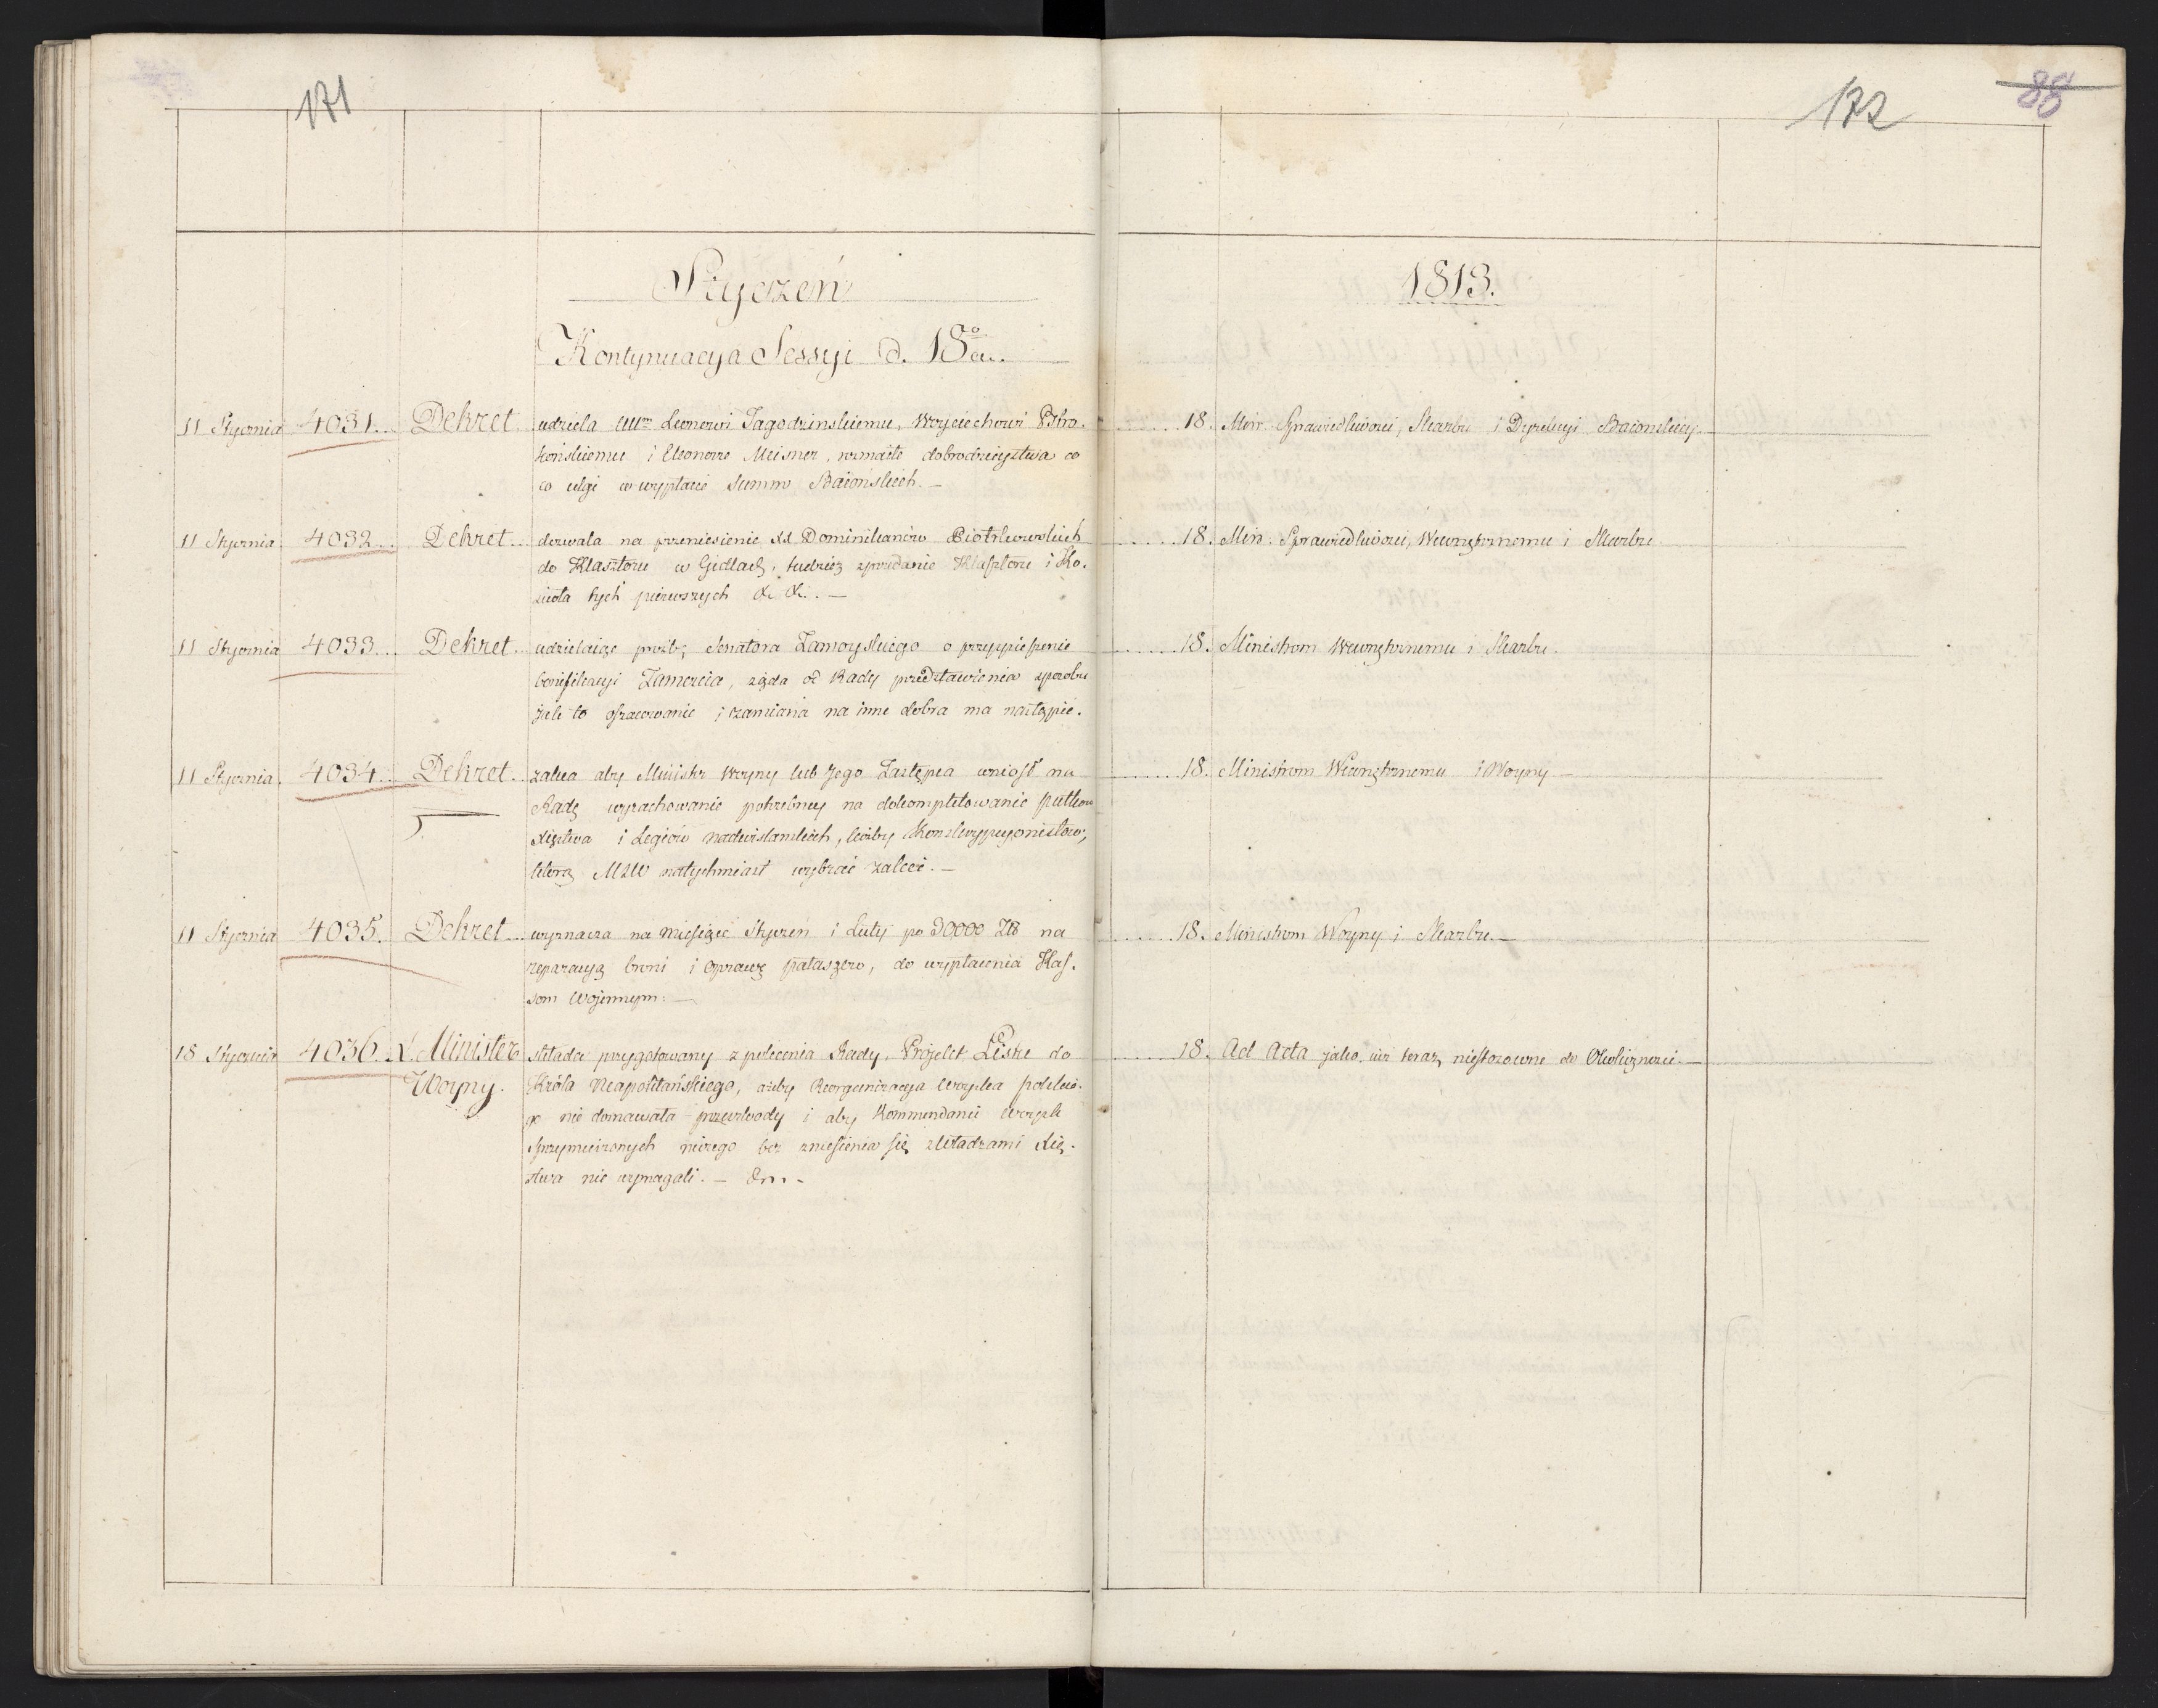 171
Styczeń
Kontynuacya Sessyi d. 18
11 Stycznia 4031. Dekret. udziela Leonowi Jagodzinskiemu, Woyciechowi
końskiemu i Eleonorze Meisner, rozmaite dobrodzieystwa co
co ulgi w wypłacie Summ Baiońskich. —
11 Stycznia 4032. Dekret. dozwala na przeniesienie XX Dominikanów Piotrkowskich
do Klasztoru w Gidlach, tudzież sprzedanie Klasztoru i Ko-
ścioła tych pierwszych &c &c. —
11 Stycznia 4033. Dekret. udzielaiąc prozbę Senatora Zamoyskiego o przyspieszenie
bonifikacyi Zamościa, żąda od Rady przedstawienia sposobu
jak to oszacowanie i zamiana na inne dobra ma nastąpić.
11 Stycznia. 4034. Dekret. zaleca aby Ministr Woyny lub Jego Zastępca wniósł na
Radę wyrachowanie potrzebney na dokompletowanie pułków
Xięstwa i Legiów nadwislanskich, liczby Konskrypcyonistów,
którą MSW natychmiast wybrać zaleci. —
11 Stycznia 4035. Dekret wyznacza na miesiąc Styczeń i Luty po 30000 Zł na
reparacyą broni i oprawę pałaszów, do wypłacenia Kas-
som Woiennym. —
18 Stycznia 4036. X. Minister składa przygotowany z polecenia Rady, Projekt Pisma do
Woyny. Króla Neapolitańskiego, ażeby Reorganizacya Woyska polskie-
go nie doznawała przeszkody i aby Kommendanci Woysk
sprzymierzonych niczego bez zniesienia się z Władzami Xię-
stwa nie wymagali. —
172
88
1813.
18. Min. Sprawiedliwości, Skarbu i Dyrekcyi Baiońskiey.
18. Min. Sprawiedliwości, Wewnętrznemu i Skarbu
18. Ministrom Wewnętrznemu i Skarbu.
18. Ministrom Wewnętrznemu i Woyny —
18. Ministrom Woyny i Skarbu. —
18. Ad Acta jako iuż teraz niestosowne do Okoliczności. —